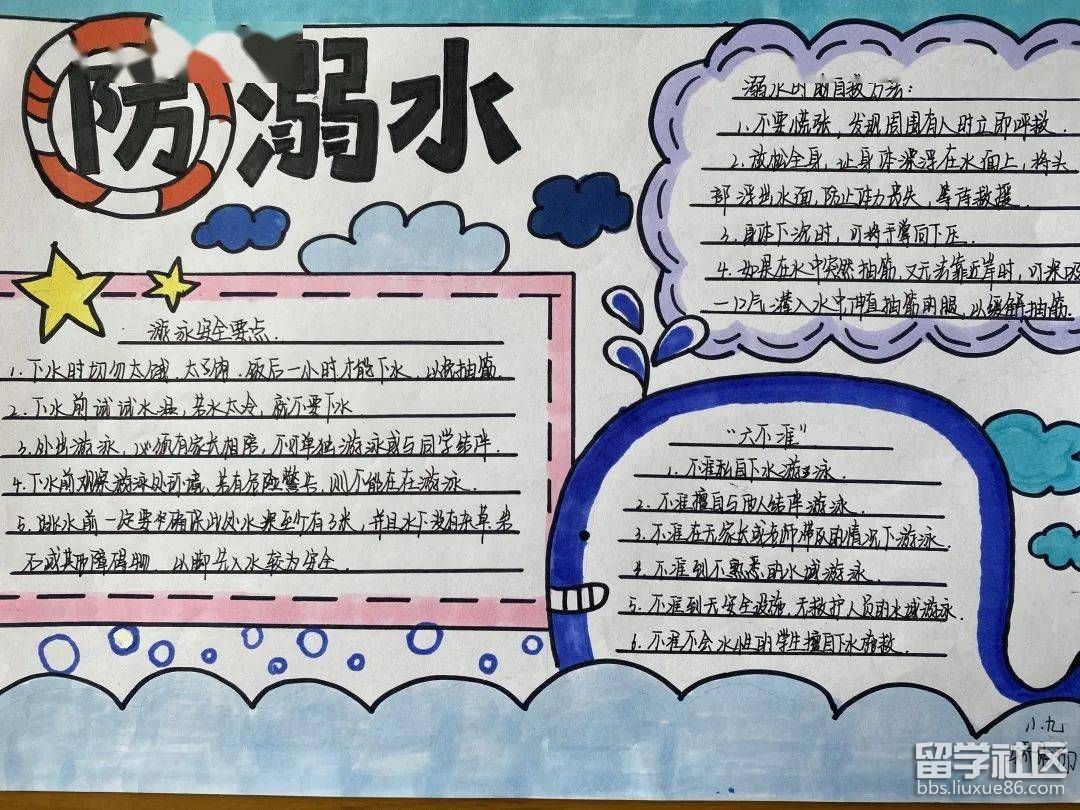 防溺水
溺水时的自救方法：
1.不要慌张，发现周围有人时立即呼救.
2.放松全身，让身体漂浮在水面上，将头
部浮出水面，防止体力丧失，等待救援.
3.身体下沉时，可将手掌向下压.
4.如果在水中突然抽筋，又无法靠近岸时，可深吸
一口气潜入水中伸直抽筋的腿，以缓解抽筋.
游泳安全要点.
1.下水时切勿太饿、太饱.饭后一小时才能下水，以免抽筋.
2.下水前试试水温，若水太冷，就不要下水
3.外出游泳，必须有家长相陪，不可单独游泳或与同学结伴.
4.下水前观察游泳处环境，若有危险警告，则不能在在游泳.
5.跳水前一定要确保此处水深至少有3米，并且水下没有杂草岩
石或其他障碍物.以脚先入水较为安全.
“六不准”
1.不准私自下水游泳.
2.不准擅自与他人结伴游泳.
3.不准在无家长或老师带队的情况下游泳.
4.不准到不熟悉的水域游泳.
5.不准到无安全设施、无救护人员的水域游泳.
6.不准不会水性的学生擅自下水施救.
小九
留学社区
bbs.liuxue86.com